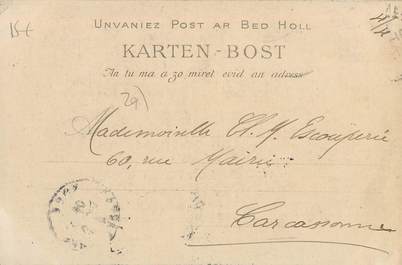 15€
UNVANIEZ POST AR BED HOLL
KARTEN-BOST
An tu ma a zo miret evid an adress
Mademoiselle
60, rue Mairie
Carcassonne